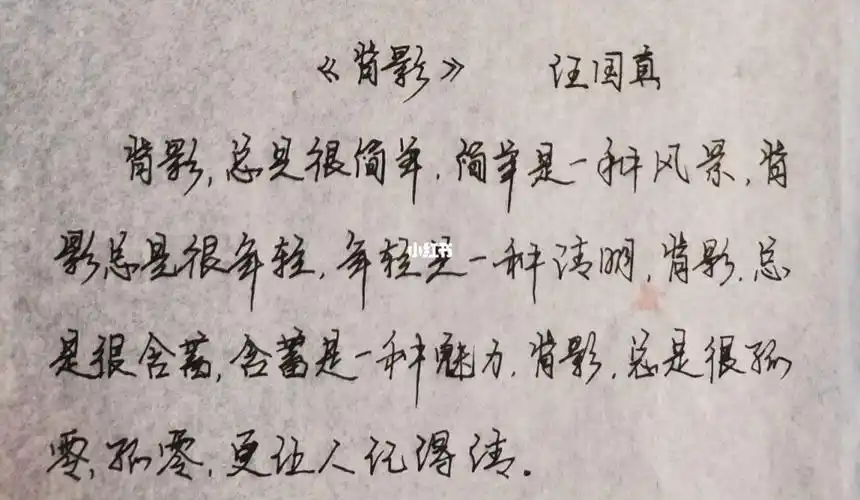 《背影》 汪国真
背影,总是很简单,简单是一种风景,背
影总是很年轻,年轻是一种清明,背影,总
小红书
是很含蓄,含蓄是一种魅力,背影,总是很孤
零,孤零,更让人记得清。